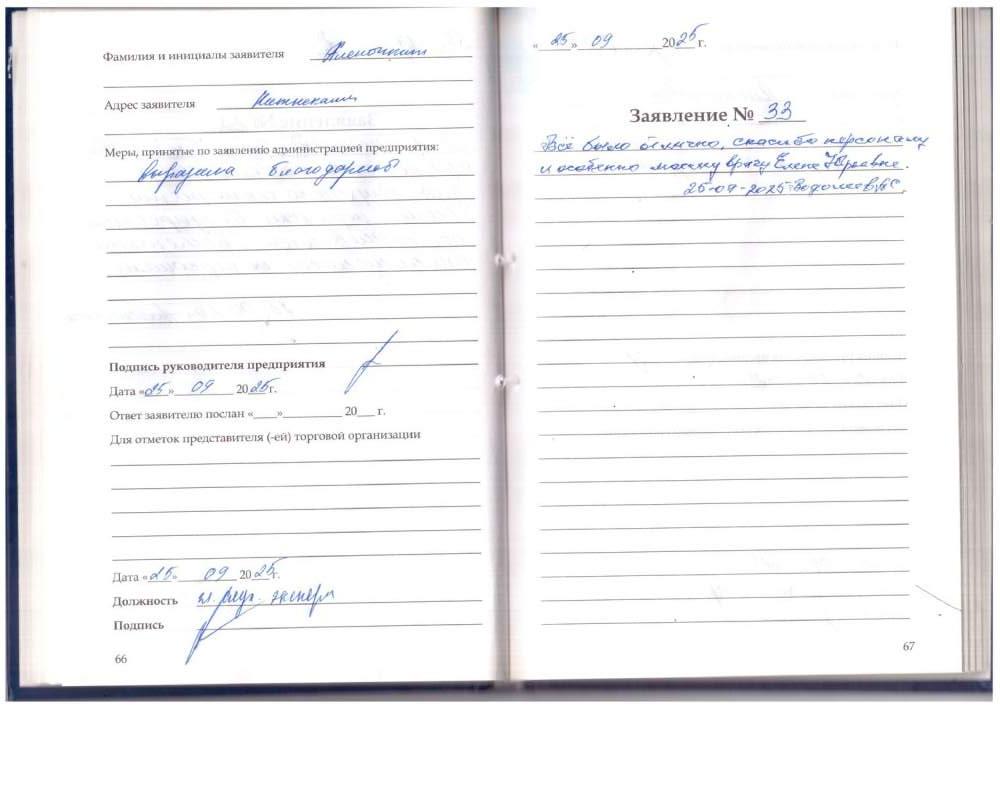 Фамилия и инициалы заявителя
Адрес заявителя Нижнекамск
Меры, принятые по заявлению администрацией предприятия:
Выразила благодарность
Подпись руководителя предприятия
Дата «25» 09 2025 г.
Ответ заявителю послан «____»__________ 20___ г.
Для отметок представителя (-ей) торговой организации
Дата «25» 09 2025 г.
Должность гл. эксперт
Подпись
66
«25» 09 2025 г.
Заявление № 33
Всё было отлично, спасибо персоналу
и особенно моему врачу Елене Юрьевне.
25-09-2025
67